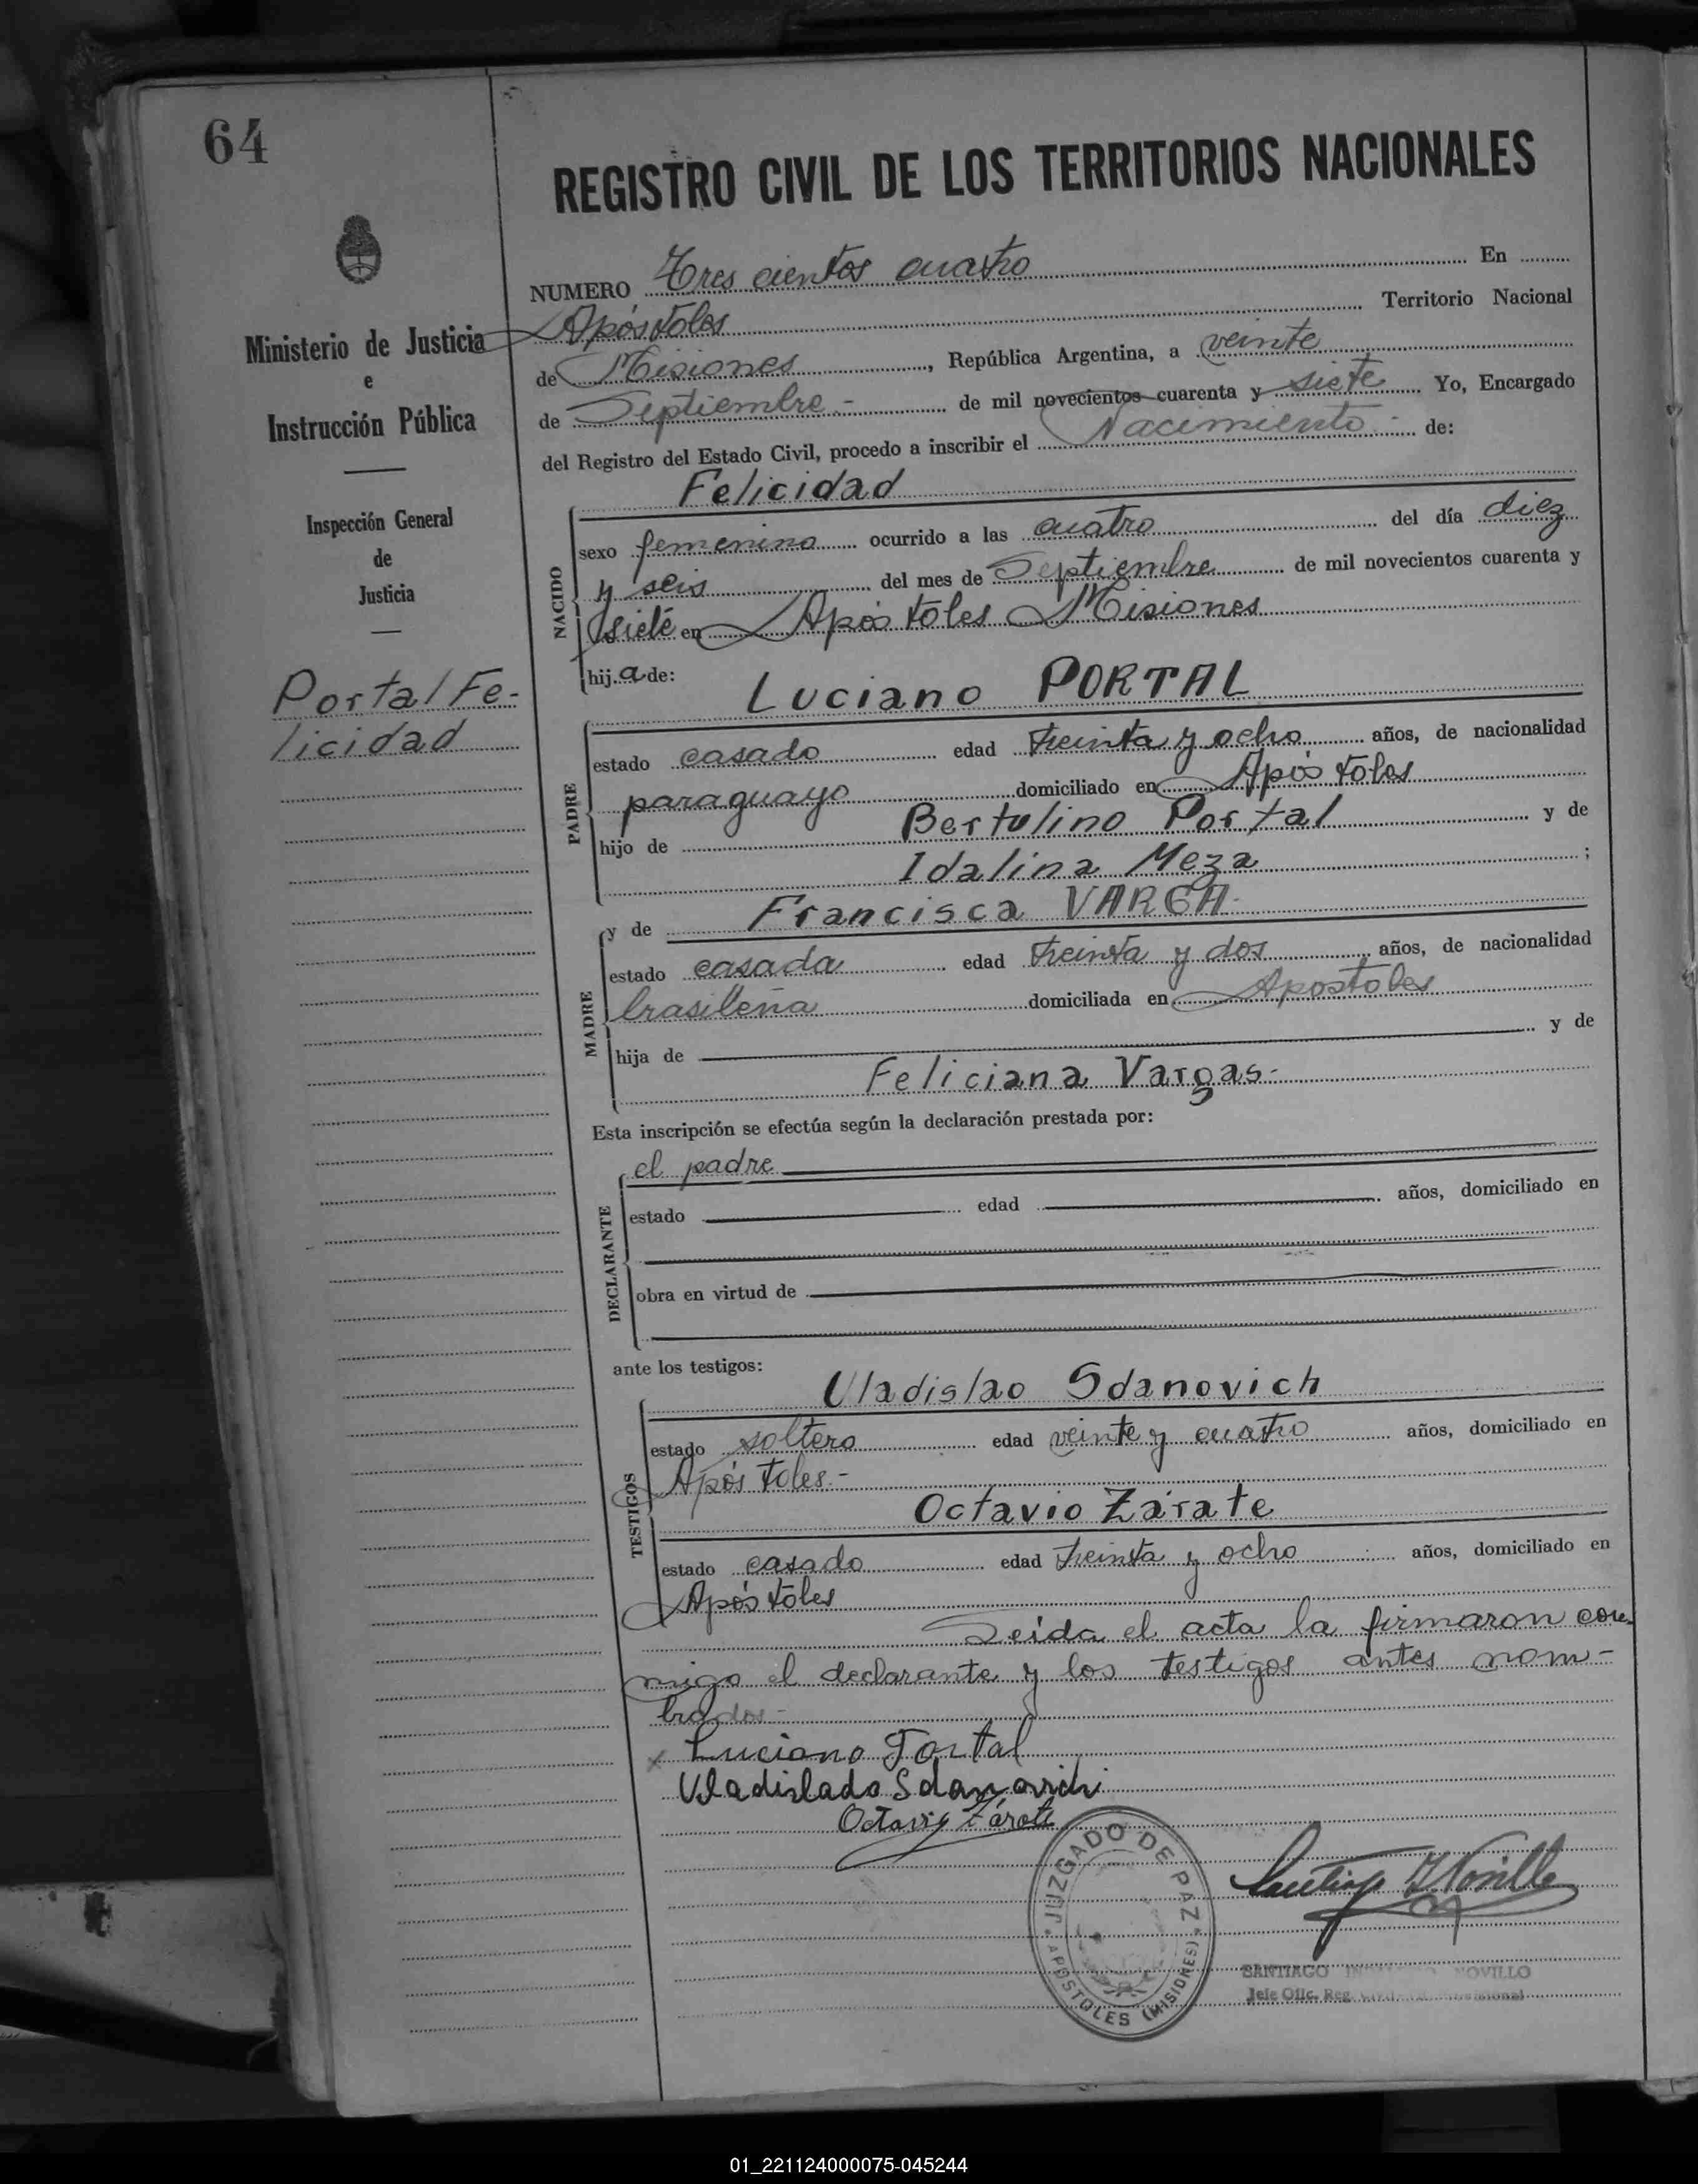 64
REGISTRO CIVIL DE LOS TERRITORIOS NACIONALES
Ministerio de Justicia
e
Instrucción Pública
Inspección General
de
Justicia
Portal Fe-
licidad
NUMERO Tres cientos cuatro En
Apóstoles Territorio Nacional
de Misiones, República Argentina, a veinte
de Septiembre - de mil novecientos cuarenta y siete Yo, Encargado
del Registro del Estado Civil, procedo a inscribir el Nacimiento - de:
NACIDO
Felicidad
sexo femenino ocurrido a las cuatro del día diez
y seis del mes de Septiembre de mil novecientos cuarenta y
siete en Apóstoles Misiones
hija de:
PADRE
Luciano PORTAL
estado casado edad treinta y ocho años, de nacionalidad
paraguayo domiciliado en Apóstoles
hijo de Bertulino Portal y de
Idalina Meza ;
MADRE
y de Francisca VARGA-
estado casada edad treinta y dos años, de nacionalidad
brasileña domiciliada en Apostoles
hija de y de
Feliciana Vargas-
Esta inscripción se efectúa según la declaración prestada por:
DECLARANTE
el padre
estado edad años, domiciliado en
obra en virtud de
ante los testigos:
TESTIGOS
Uladislao Sdanovich
estado soltero edad veinte y cuatro años, domiciliado en
Apóstoles.-
Octavio Zárate
estado casado edad treinta y ocho años, domiciliado en
Apóstoles
Leida el acta la firmaron con-
migo el declarante y los testigos antes nom-
brados-
x Luciano Portal
Uladislado Sdanovich
Octavio Zárate
JUZGADO DE PAZ
APOSTOLES (MISIONES)
Santiago I Novillo
SANTIAGO NOVILLO
Jefe Ofic. Reg.
01_221124000075-045244